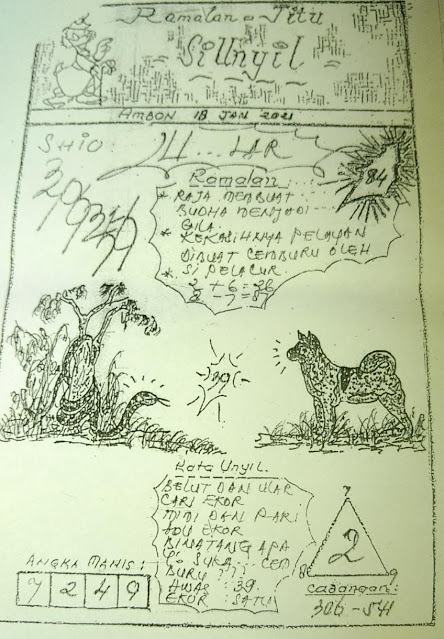 Ramalan Jitu
SiUnyil
AMBON 18 JAN 2021
SHIO
84
Ramalan
* RAJA MEMBUAT
BUDHA MENJADI
GILA.
* KEKASIHNYA PELAYAN
DIBUAT CEMBURU OLEH
* SI PELACUR.
39
Kata Unyil.
BELUT DAN ULAR
CARI EKOR
MIMI DAN PARI
ADU EKOR
BINATANG APA
SUKA.. CEM
BURU ???
AWAS : 39.
EKOR : SATU
ANGKA MANIS:
7 2 4 9
7
2
8 9
Cadangan:
306-541